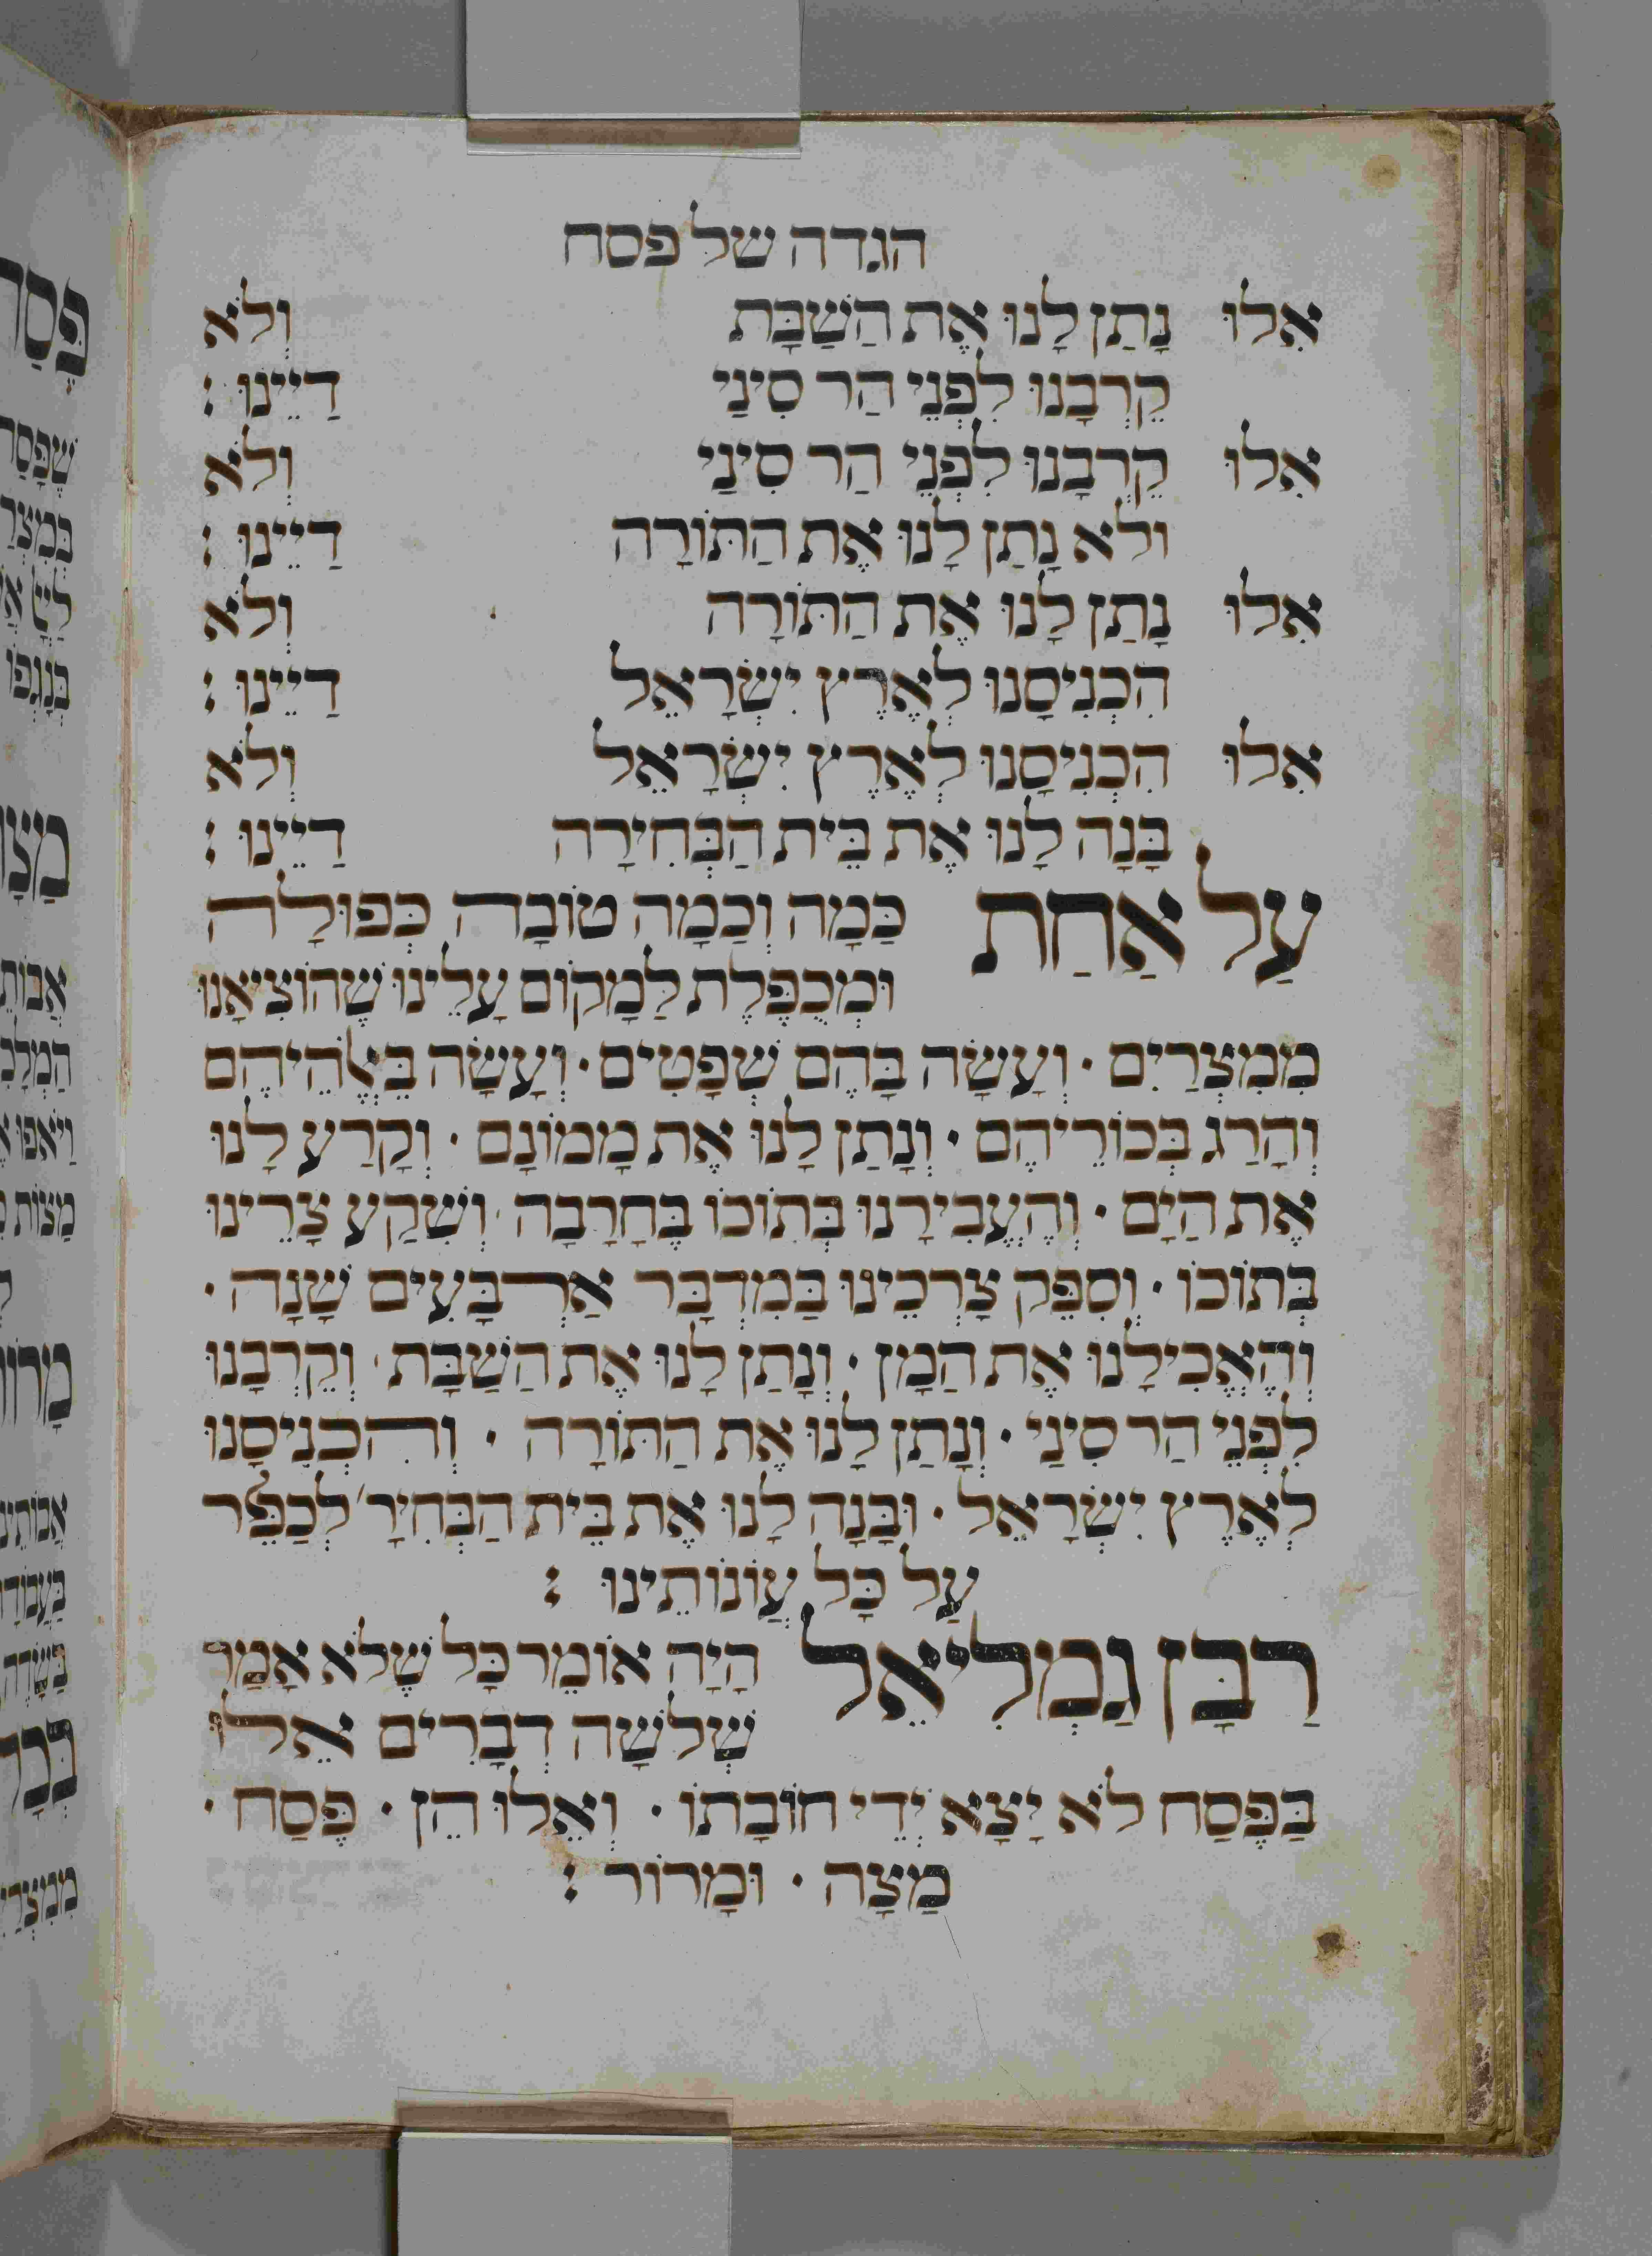 הגדה של פסח
אִלוּ נָתַן לָנוּ אֶת הַשַׁבָּת וְלֹא
קֵרְבָנוּ לִפְנֵי הַר סִינַי דַיֵינוּ :
אִלוּ קֵרְבָנוּ לִפְנֵי הַר סִינַי וְלֹא
ולא נָתַן לָנוּ אֶת הַתּוֹרָה דַיֵינוּ :
אִלוּ נָתַן לָנוּ אֶת הַתּוֹרָה וְלֹא
הִכְנִיסָנוּ לְאֶרֶץ יִשְׂרָאֵל דַיֵינוּ :
אִלוּ הִכְנִיסָנוּ לְאֶרֶץ יִשְׂרָאֵל וְלֹא
בָּנָה לָנוּ אֶת בֵּית הַבְּחִירָה דַיֵינוּ :
עַל אַחַת כַּמָה וְכַמָה טוֹבָה כְּפוּלָה
וּמְכֻפֶּלֶת לַמָקוֹם עָלֵינוּ שֶׁהוֹצִיאָנוּ
מִמִצְרַיִם · וְעָשָׂה בָּהֶם שְׁפָטִים · וְעָשָׂה בֵּאלֹהֵיהֶם
וְהָרַג בְּכוֹרֵיהֶם · וְנָתַן לָנוּ אֶת מָמוֹנָם · וְקָרַע לָנוּ
אֶת הַיָם · וְהֶעֱבִירָנוּ בְּתוֹכוֹ בֶּחָרָבָה · וְשִׁקַע צָרֵינוּ
בְּתוֹכוֹ · וְסִפֵּק צָרְכֵינוּ בַּמִדְבָּר אַרְבָּעִים שָׁנָה ·
וְהֶאֱכִילָנוּ אֶת הַמָן · וְנָתַן לָנוּ אֶת הַשַׁבָּת · וְקֵרְבָנוּ
לִפְנֵי הַר סִינַי · וְנָתַן לָנוּ אֶת הַתּוֹרָה · וְהִכְנִיסָנוּ
לְאֶרֶץ יִשְׂרָאֵל · וּבָנָה לָנוּ אֶת בֵּית הַבְּחִירָ׳ לְכַפֵּר
עַל כָּל עֲוֹנוֹתֵינוּ :
רַבָּן גַמְלִיאֵל הָיָה אוֹמֵר כָּל שֶׁלֹא אָמַר
שְׁלשָׁה דְבָרִים אֵלוּ
בַּפֶּסַח לֹא יָצָא יְדֵי חוֹבָתוֹ · וְאֵלוּ הֵן · פֶּסַח ·
מַצָה · וּמָרוֹר :